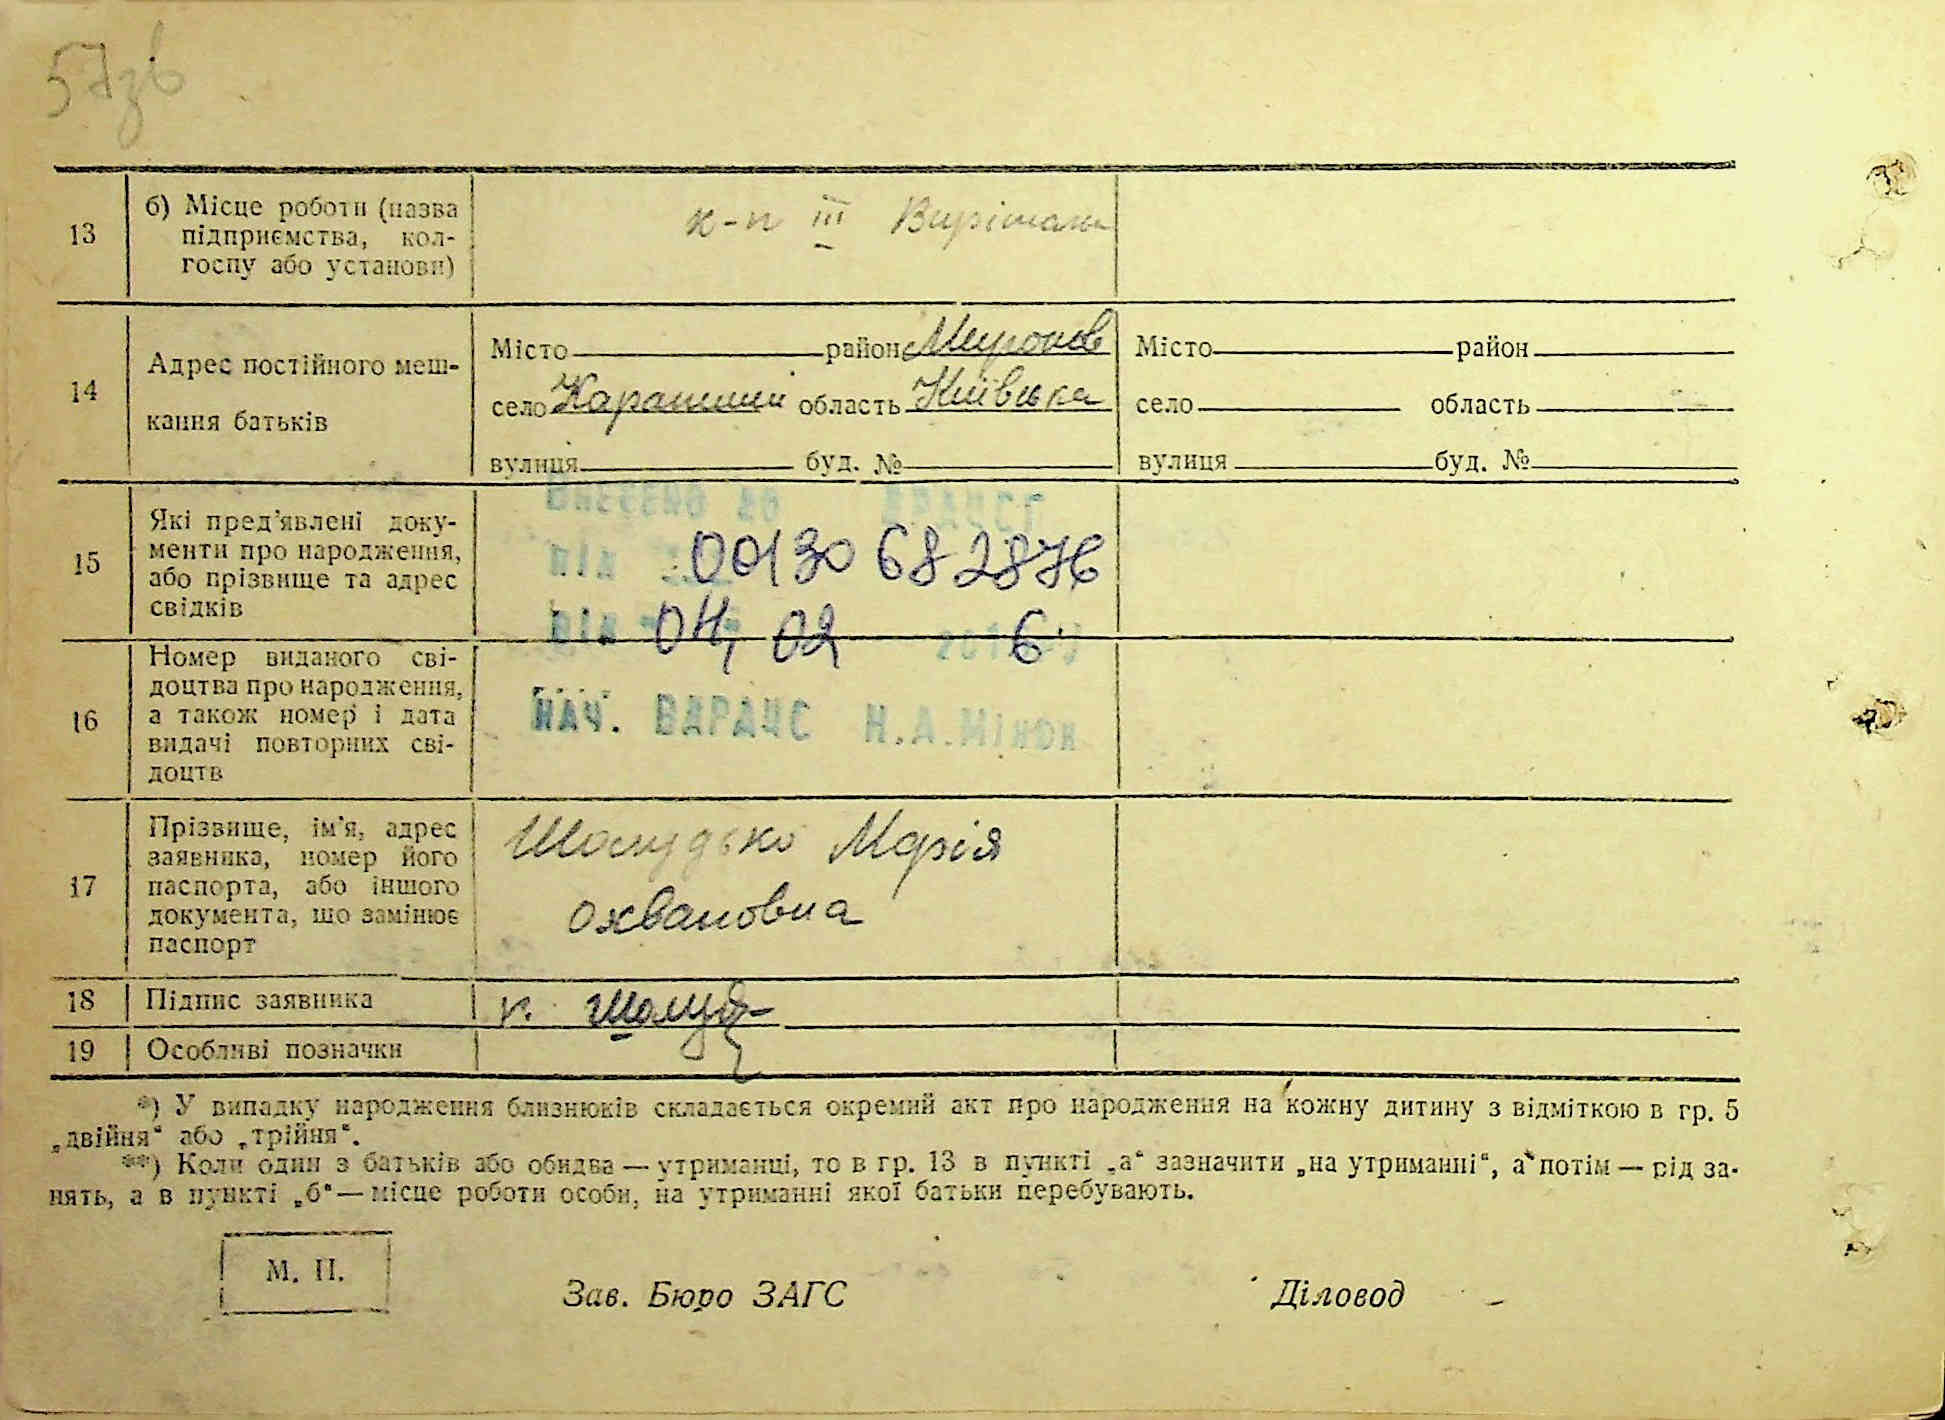 57зв
13
б) Місце роботи (назва
підприємства, кол-
госпу або установи)
к-п ІІІ Вирішальн
14
Адрес постійного меш-
кання батьків
Місто район Миронов
село Карапиши область Київська
вулиця буд. №
Місто район
село область
вулиця буд. №
15
Які пред'явлені доку-
менти про народження,
або прізвище та адрес
свідків
Внесено до ДРАЦСГ
від 00130682876
від 04, 02 2016
16
Номер виданого сві-
доцтва про народження,
а також номер і дата
видачі повторних сві-
доцтв
НАЧ. ВДРАЦС Н.А.Мінюк
17
Прізвище, ім'я, адрес
заявника, номер його
паспорта, або іншого
документа, що замінює
паспорт
Шолудько Марія
18
Підпис заявника
п. Шолуд
19
Особливі позначки
*) У випадку народження близнюків складається окремий акт про народження на кожну дитину з відміткою в гр. 5
„двійня“ або „трійня“.
**) Коли один з батьків або обидва — утриманці, то в гр. 13 в пункті „а“ зазначити „на утриманні“, а потім — рід за-
нять, а в пункті „б“ — місце роботи особи, на утриманні якої батьки перебувають.
М. П.
Зав. Бюро ЗАГС
Діловод